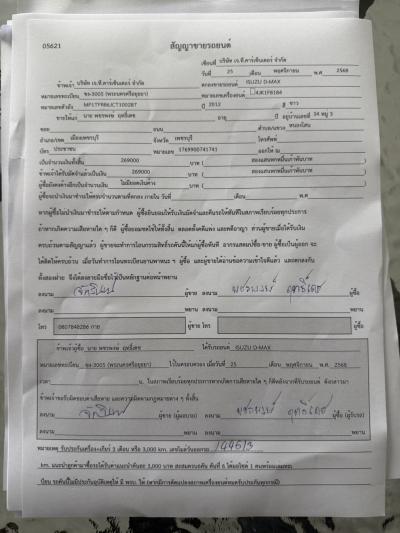 05621
สัญญาขายรถยนต์
เขียนที่ บริษัท เจ.ที.คาร์เซ็นเตอร์ จำกัด
วันที่ 25 เดือน พฤศจิกายน พ.ศ 2568
ข้าพเจ้า บริษัท เจ.ที.คาร์เซ็นเตอร์ จำกัด ตกลงขายรถยนต์ ISUZU D-MAX
หมายเลขทะเบียน ขง-3005 (พระนครศรีอยุธยา) หมายเลขเครื่องยนต์
หมายเลขตัวถัง ปี 2012 สี ขาว
ขายให้แก่ นาย พชรพงษ์ ฤทธิ์เดช อายุ ปี อยู่บ้านเลขที่ 34 หมู่ 3
ซอย ถนน ตำบล/แขวง หนองโสน
อำเภอ/เขต เมืองเพชรบุรี จังหวัด เพชรบุรี โทรศัพท์
บัตร ประชาชน หมายเลข 1769900741741 ออกให้ ณ
เป็นจำนวนเงินทั้งสิ้น 269000 บาท ( สองแสนหกหมื่นเก้าพันบาท )
ข้าพเจ้าได้รับมัดจำแล้วเป็นเงิน 269000 บาท ( สองแสนหกหมื่นเก้าพันบาท )
ผู้ซื้อยังคงค้างอีกเป็นจำนวนเงิน ไม่มียอดเงินค้าง บาท ( )
ผู้ซื้อจะนำเงินมาชำระให้ครบจำนวนตามที่ตกลง ภายใน วันที่ เดือน พ.ศ
หากผู้ซื้อไม่นำเงินมาชำระให้ตามกำหนด ผู้ซื้อยินยอมให้ริบเงินมัดจำและคืนรถให้ทันทีในสภาพเรียบร้อยทุกประการ
ถ้าหากเกิดความเสียหายใด ๆ ก็ดี ผู้ซื้อยอมชดใช้ให้ทั้งสิ้น ตลอดทั้งคดีแพ่ง และคดีอาญา ส่วนผู้ขายเมื่อได้รับเงิน
ครบถ้วนตามสัญญาแล้ว ผู้ขายจะทำการโอนกรรมสิทธิ์รถคันนี้ให้แก่ผู้ซื้อทันที อากรแสตมป์ซื้อ-ขาย ผู้ซื้อเป็นผู้ออก จะ
ได้คิดให้ครบถ้วน เมื่อวันทำการโอนทะเบียนยานพาหนะ ฯ ผู้ซื้อ และผู้ขายได้อ่านข้อความเข้าใจดีแล้ว และตกลงกัน
ทั้งสองฝ่าย จึงได้ลงลายมือชื่อไว้เป็นหลักฐานต่อหน้าพยาน
ลงนาม ผู้ขาย ลงนาม พชรพงษ์ ฤทธิ์เดช ผู้ซื้อ
ลงนาม พยาน ลงนาม พยาน
โทร 0807848286 กาย ผู้ขาย โทร ผู้ซื้อ
ข้าพเจ้าผู้ซื้อ นาย พชรพงษ์ ฤทธิ์เดช ได้รับรถยนต์ ISUZU D-MAX
หมายเลขทะเบียน ขง-3005 (พระนครศรีอยุธยา) ไปในครอบครอง เมื่อวันที่ 25 เดือน พฤศจิกายน พ.ศ 2568
เวลา น. ในสภาพเรียบร้อยทุกประการหากเกิดความเสียหายใด ๆ ก็ดีหลังจากที่รับรถยนต์ ดังกล่าวมา
ข้าพเจ้าขอรับผิดชอบต่อความเสียหาย และความผิดตามกฎหมายต่าง ๆ ทั้งสิ้น
ลงนาม ผู้ขาย (ผู้มอบรถ) ลงนาม พชรพงษ์ ฤทธิ์เดช ผู้ซื้อ (ผู้รับรถ)
ลงนาม พยาน ลงนาม พยาน
หมายเหตุ รับประกันเครื่องเกียร์ 3 เดือน หรือ 3,000 km. เลขไมล์วันออกรถ 144513